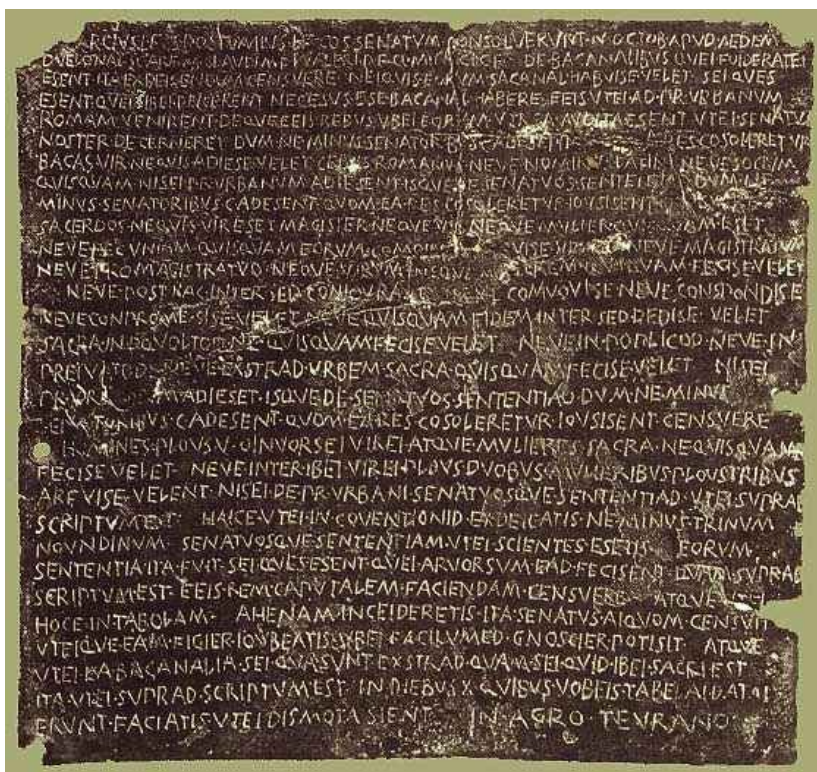 POSTVMIVS COS SENATVM CONSOLVERVNT N OCTOB APVD AEDEM
DVELONAI DE BACANALIBVS QVEI FOIDERATEI
ESENT ITA CENSVERE NEIQVIS EORVM BACANAL HABVISE VELET SEI QVES
ESENT QVEI SIBEI DEICERENT NECESVS ESE BACANAL HABERE EEIS VTEI AD PR VRBANVM
ROMAM VENIRENT DEQVE EEIS REBVS VBEI EORVM ESENT VTEI SENATVS
NOSTER DECERNERET DVM NE MINVS SENATORBVS C ADESENT RES COSOLERETVR
BACAS VIR NEQVIS ADIESE VELET CEIVIS ROMANVS NEVE NOMINVS LATINI NEVE SOCIVM
QVISQVAM NISEI PR VRBANVM ADIESENT ISQVE DE SENATVOS DVM NE
MINVS SENATORIBVS C ADESENT QVOM EA RES COSOLERETVR IOVSISENT
SACERDOS NEQVIS VIR ESET MAGISTER NEQVE VIR NEQVE MVLIER ESET
NEVE PECVNIAM QVISQVAM EORVM VELET NEVE MAGISTRATVM
NEVE PRO MAGISTRATVD NEQVE VIRVM FECISE VELET
NEVE POST HAC INTER SED CONIOVRASE COMVOVISE NEVE CONSPONDISE
NEVE CONPROMESISE VELET NEVE QVISQVAM FIDEM INTER SED DEDISE VELET
SACRA IN OQVOLTOD NE QVISQVAM FECISE VELET NEVE IN POPLICOD NEVE IN
PREIVATOD NEVE EXSTRAD VRBEM SACRA QVISQVAM FECISE VELET NISEI
PR ADIESET ISQVE DE SENATVOS SENTENTIAD DVM NE MINVS
SENATORIBVS C ADESENT QVOM EA RES COSOLERETVR IOVSISENT CENSVERE
HOMINES PLOVS V OINVORSEI VIREI ATQVE MVLIERES SACRA NE QVISQVAM
FECISE VELET NEVE INTER IBEI VIREI PLOVS DVOBVS MVLIERIBVS PLOVS TRIBVS
ARFVISE VELENT NISEI DE PR VRBANI SENATVOSQVE SENTENTIAD VTEI SVPRAD
SCRIPTVM EST HAICE VTEI IN COVENTIONID EXDEICATIS NE MINVS TRINVM
NOVNDINVM SENATVOSQVE SENTENTIAM VTEI SCIENTES ESETIS EORVM
SENTENTIA ITA FVIT SEI QVES ESENT QVEI ARVORSVM EAD FECISENT QVAM SVPRAD
SCRIPTVM EST EEIS REM CAPVTALEM FACIENDAM CENSVERE ATQVE VTEI
HOCE IN TABOLAM AHENAM INCEIDERETIS ITA SENATVS AIQVOM CENSVIT
VTEIQVE EAM FIGIER IOVBEATIS VBEI FACILVMED GNOSCIER POTISIT ATQVE
VTEI EA BACANALIA SEI QVA SVNT EXSTRAD QVAM SEI QVID IBEI SACRI EST
ITA VTEI SVPRAD SCRIPTVM EST IN DIEBVS X QVIBVS VOBEIS TABELAI DATAI
ERVNT FACIATIS VTEI DISMOTA SIENT IN AGRO TEVRANO